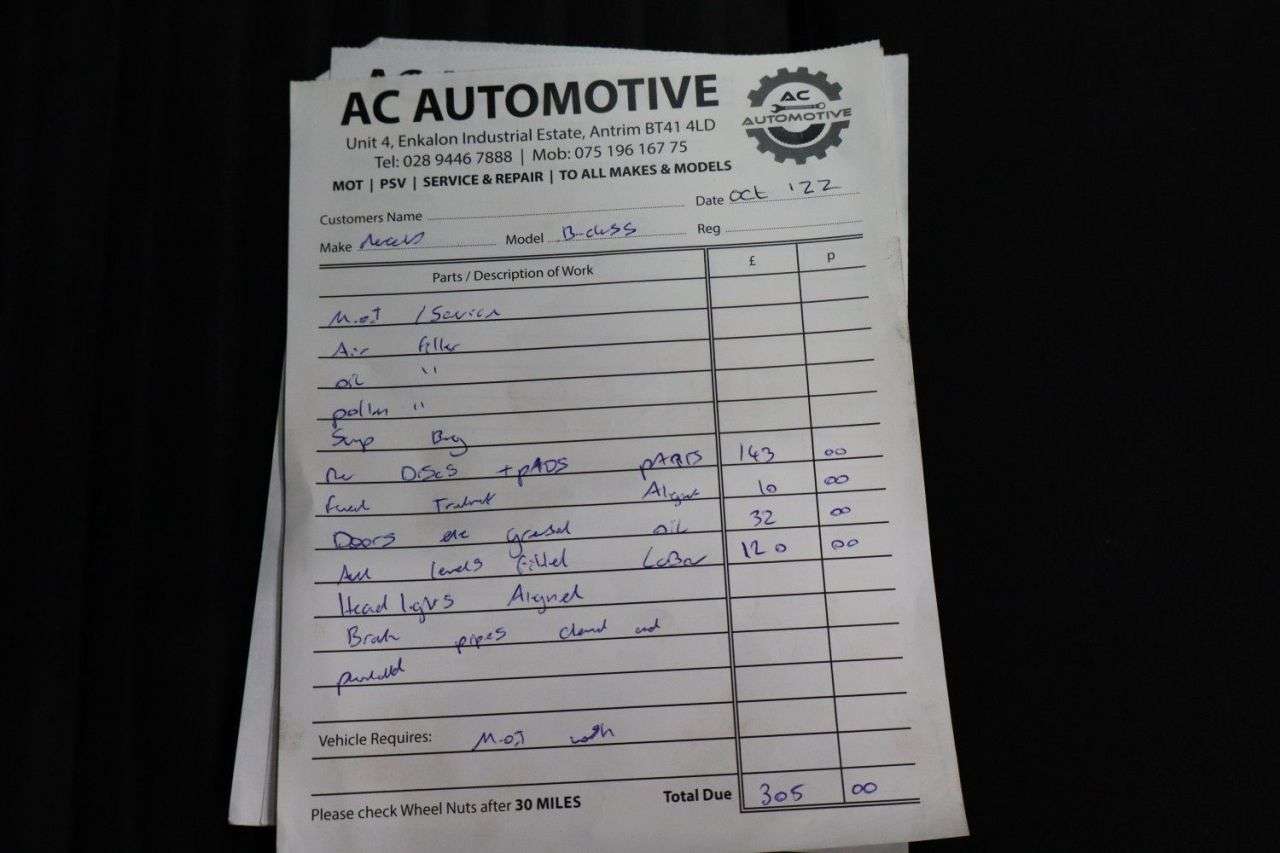 AC
AC AUTOMOTIVE
AC
AUTOMOTIVE
Unit 4, Enkalon Industrial Estate, Antrim BT41 4LD
Tel: 028 9446 7888 | Mob: 075 196 167 75
MOT | PSV | SERVICE & REPAIR | TO ALL MAKES & MODELS
Customers Name Date Oct '22
Make Model B-class Reg
Parts / Description of Work £ p
M.O.T / Service
Air filter
oil "
pollen "
Sump
Discs + pADS pARTS 143 00
fuel 10 00
Doors greased oil 32 00
All levels filled LaBor 120 00
Head Aligned
pipes and
Vehicle Requires: M.O.T
Please check Wheel Nuts after 30 MILES Total Due 305 00